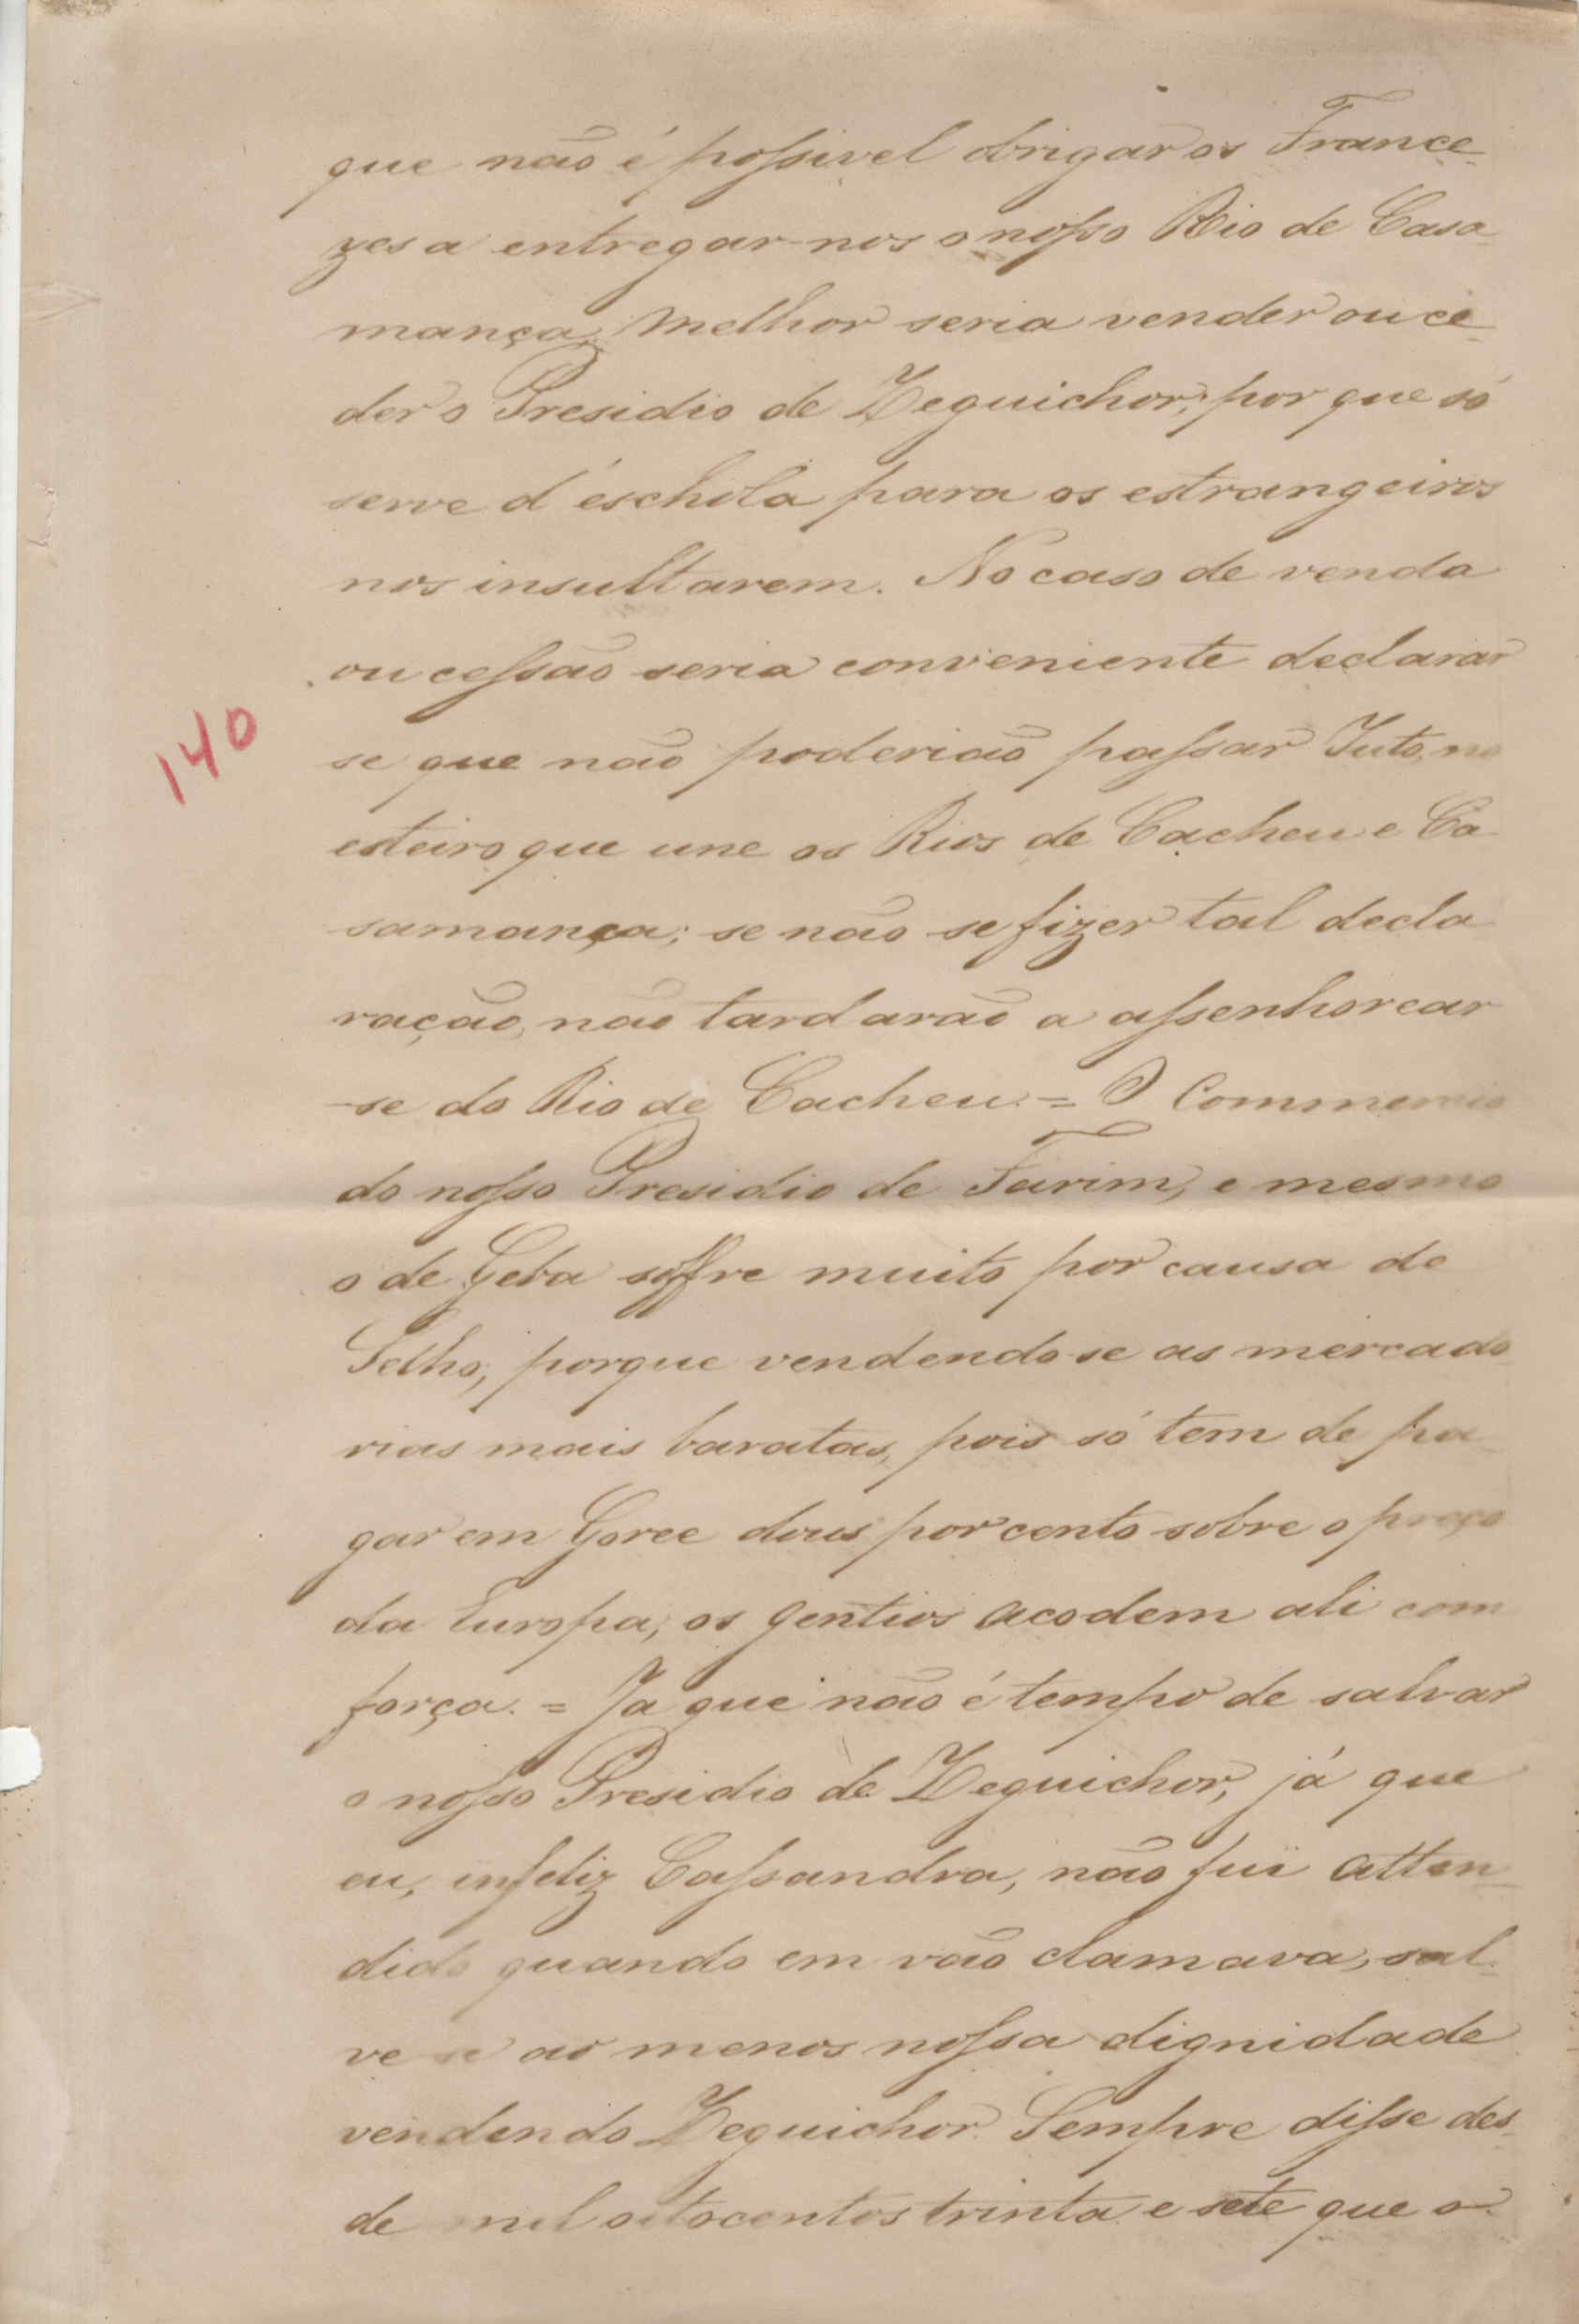 que não é possivel obrigar os France-
zes a entregar-nos o nosso Rio de Casa-
mança. Melhor seria vender ou ce-
der o Presidio de Zeguichor, por que só
serve d'éschola para os estrangeiros
nos insultarem. No caso de venda
ou cessão seria conveniente declarar
se que não poderião passar Juto, no
esteiro que une os Rios de Cacheu e Ca-
samança; se não se fizer tal decla
ração, não tardarão a assenhorear
-se do Rio de Cacheu. = O Commercio
do nosso Presidio de Farim, e mesmo
o de Geba soffre muito por causa de
Selho, porque vendendo-se as mercado
rias mais baratas, pois só tem de pa-
gar em Goree dous por cento sobre o preço
da Europa, os gentios acodem ali com
força. = Ja que não é tempo de salvar
o nosso Presidio de Zeguichor, já que
eu, infeliz Cassandra, não fui atten-
dido quando em vão clamava, sal-
ve se ao menos nossa dignidade
vendendo Zeguichor. Sempre disse des-
de mil oitocentos trinta e sete que o
140